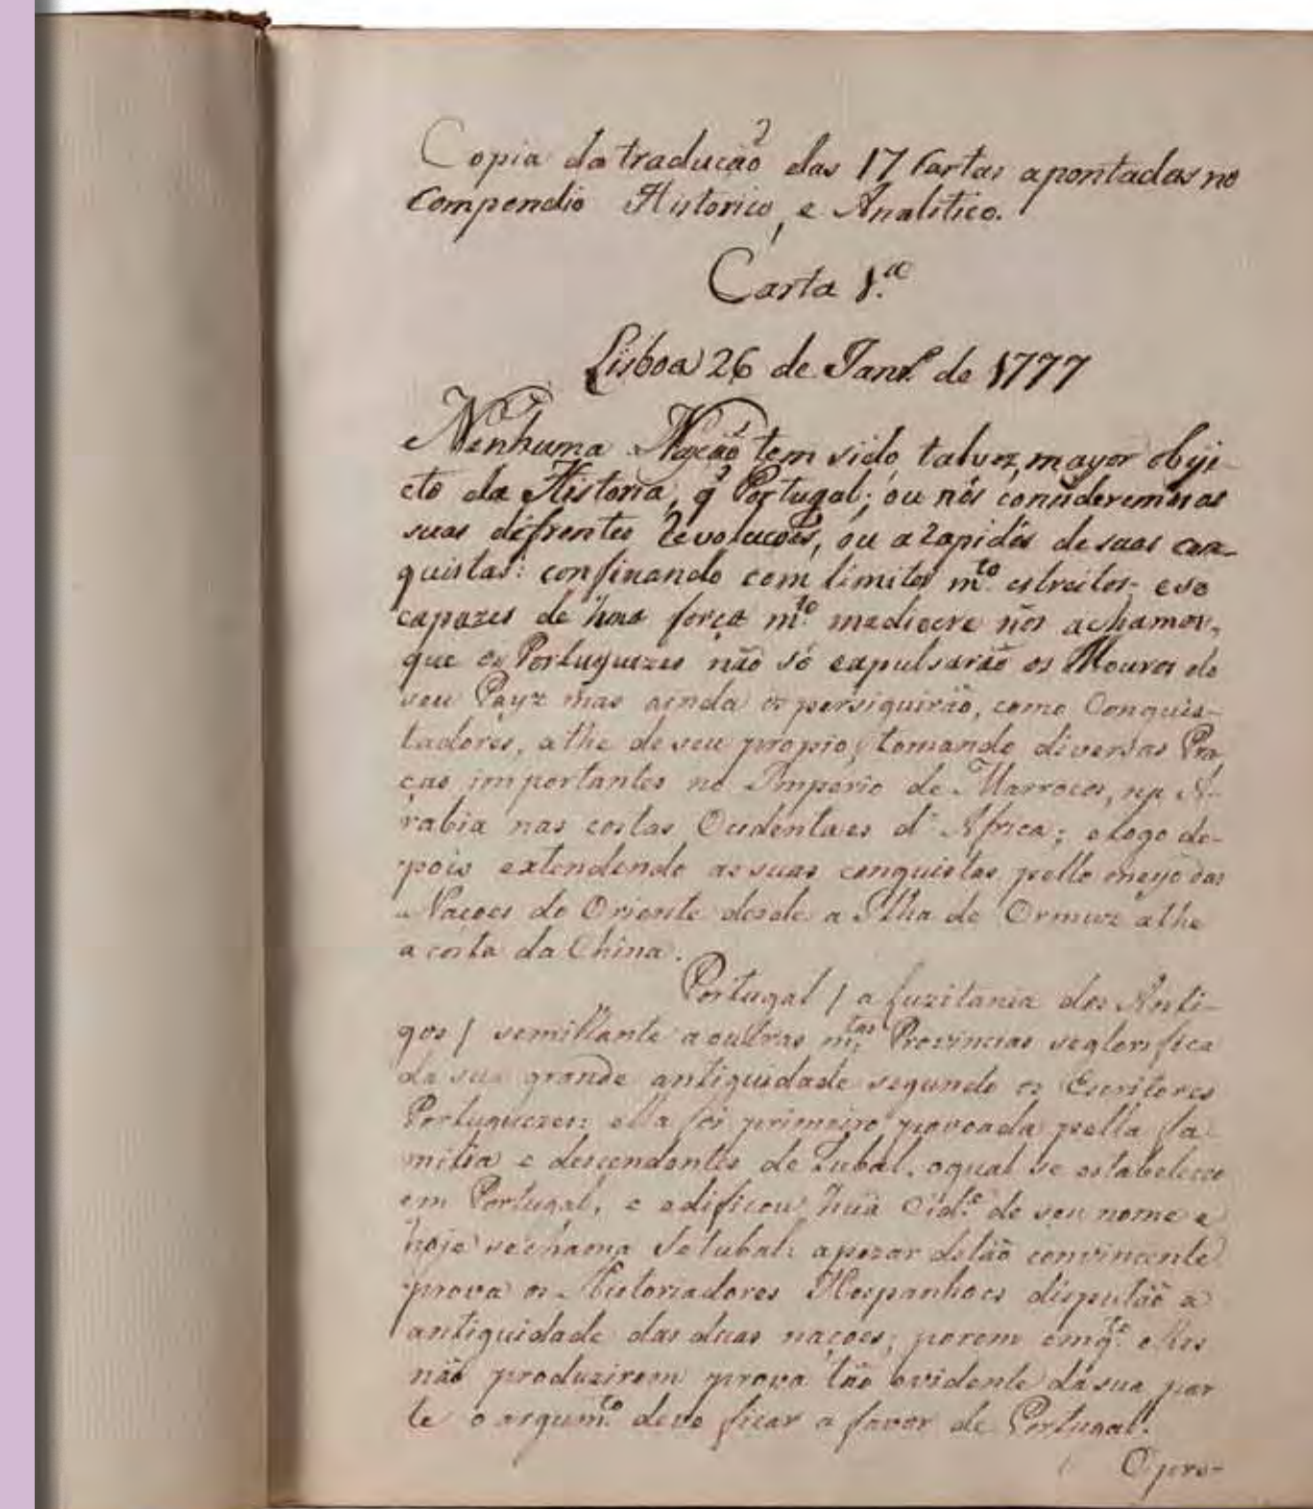 Copia da traducaõ das 17 Cartas apontadas no
Compendio Historico, e Analitico.
Carta 1.ª
Lisboa 26 de Janr.º de 1777
Nenhuma Naçaõ tem sido, talvez, mayor obje-
cto da Historia, q̃ Portugal; ou nós consideremos as
suas difrentes revoluçoẽs, ou a rapidês de suas con-
quistas: confinando com limites m.to estreitos, e só
capazes de hua força m.to mediocre nòs achamos,
que os Portuguezes não só expulsarão os Mouros do
seu Payz mas ainda os persiguirão, como Conquis-
tadores, athe de seu propio, tomando diversas Pra-
ças importantes no Imperio de Marrocos, na A-
rabia nas costas Ocidentaes d'Africa; e logo de-
pois extendendo as suas conquistas pello meyo das
Naçoes do Oriente desde a Ilha de Ormuz athe
a costa da China.
Portugal / a Luzitania dos Anti-
gos / semilhante a outras m.tas Provincias se glorifica
da sua grande antiguidade segundo os Escritores
Portuguezes: ella foi primeiro povoada pella fa-
milia e descendentes de Tubal, o qual se estabeleceo
em Portugal, e edificou huã Cid.e de seu nome e
hoje se chama Setubal: apezar de tão convincente
prova os Historiadores Hespanhoes disputão a
antiguidade das duas naçoes; porem emq.to elles
não produzirem prova tão evidente da sua par
te o argum.to deve ficar a favor de Portugal.
O pro-